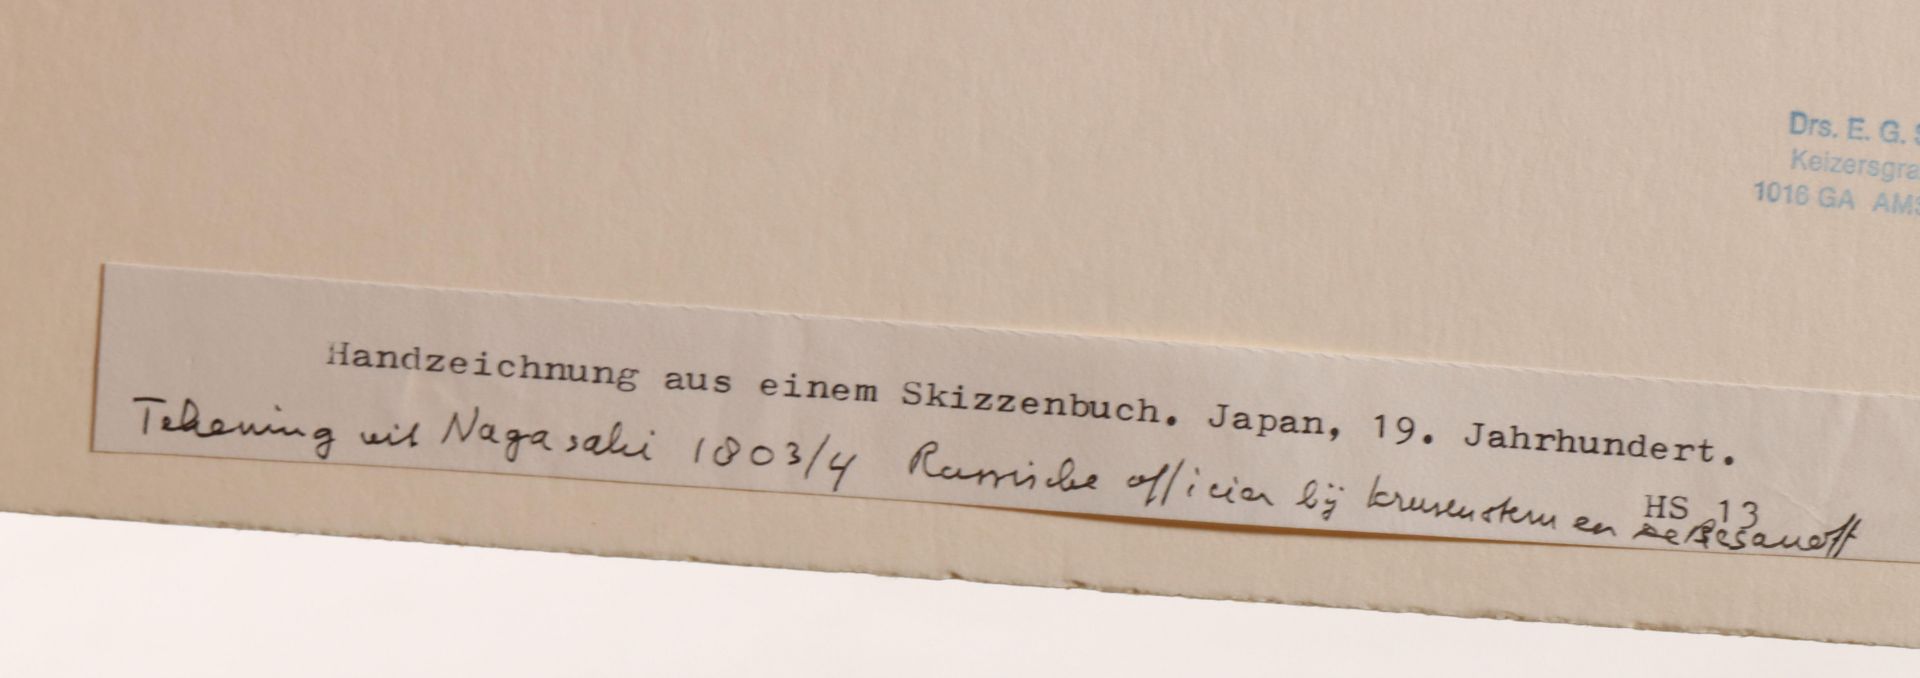 Drs. E. G.
Keizersgra
1016 GA AMS
Handzeichnung aus einem Skizzenbuch. Japan, 19. Jahrhundert.
HS 13
Tekening uit Nagasaki 1803/4 Russische officier bij Krusenstern en Resanoff